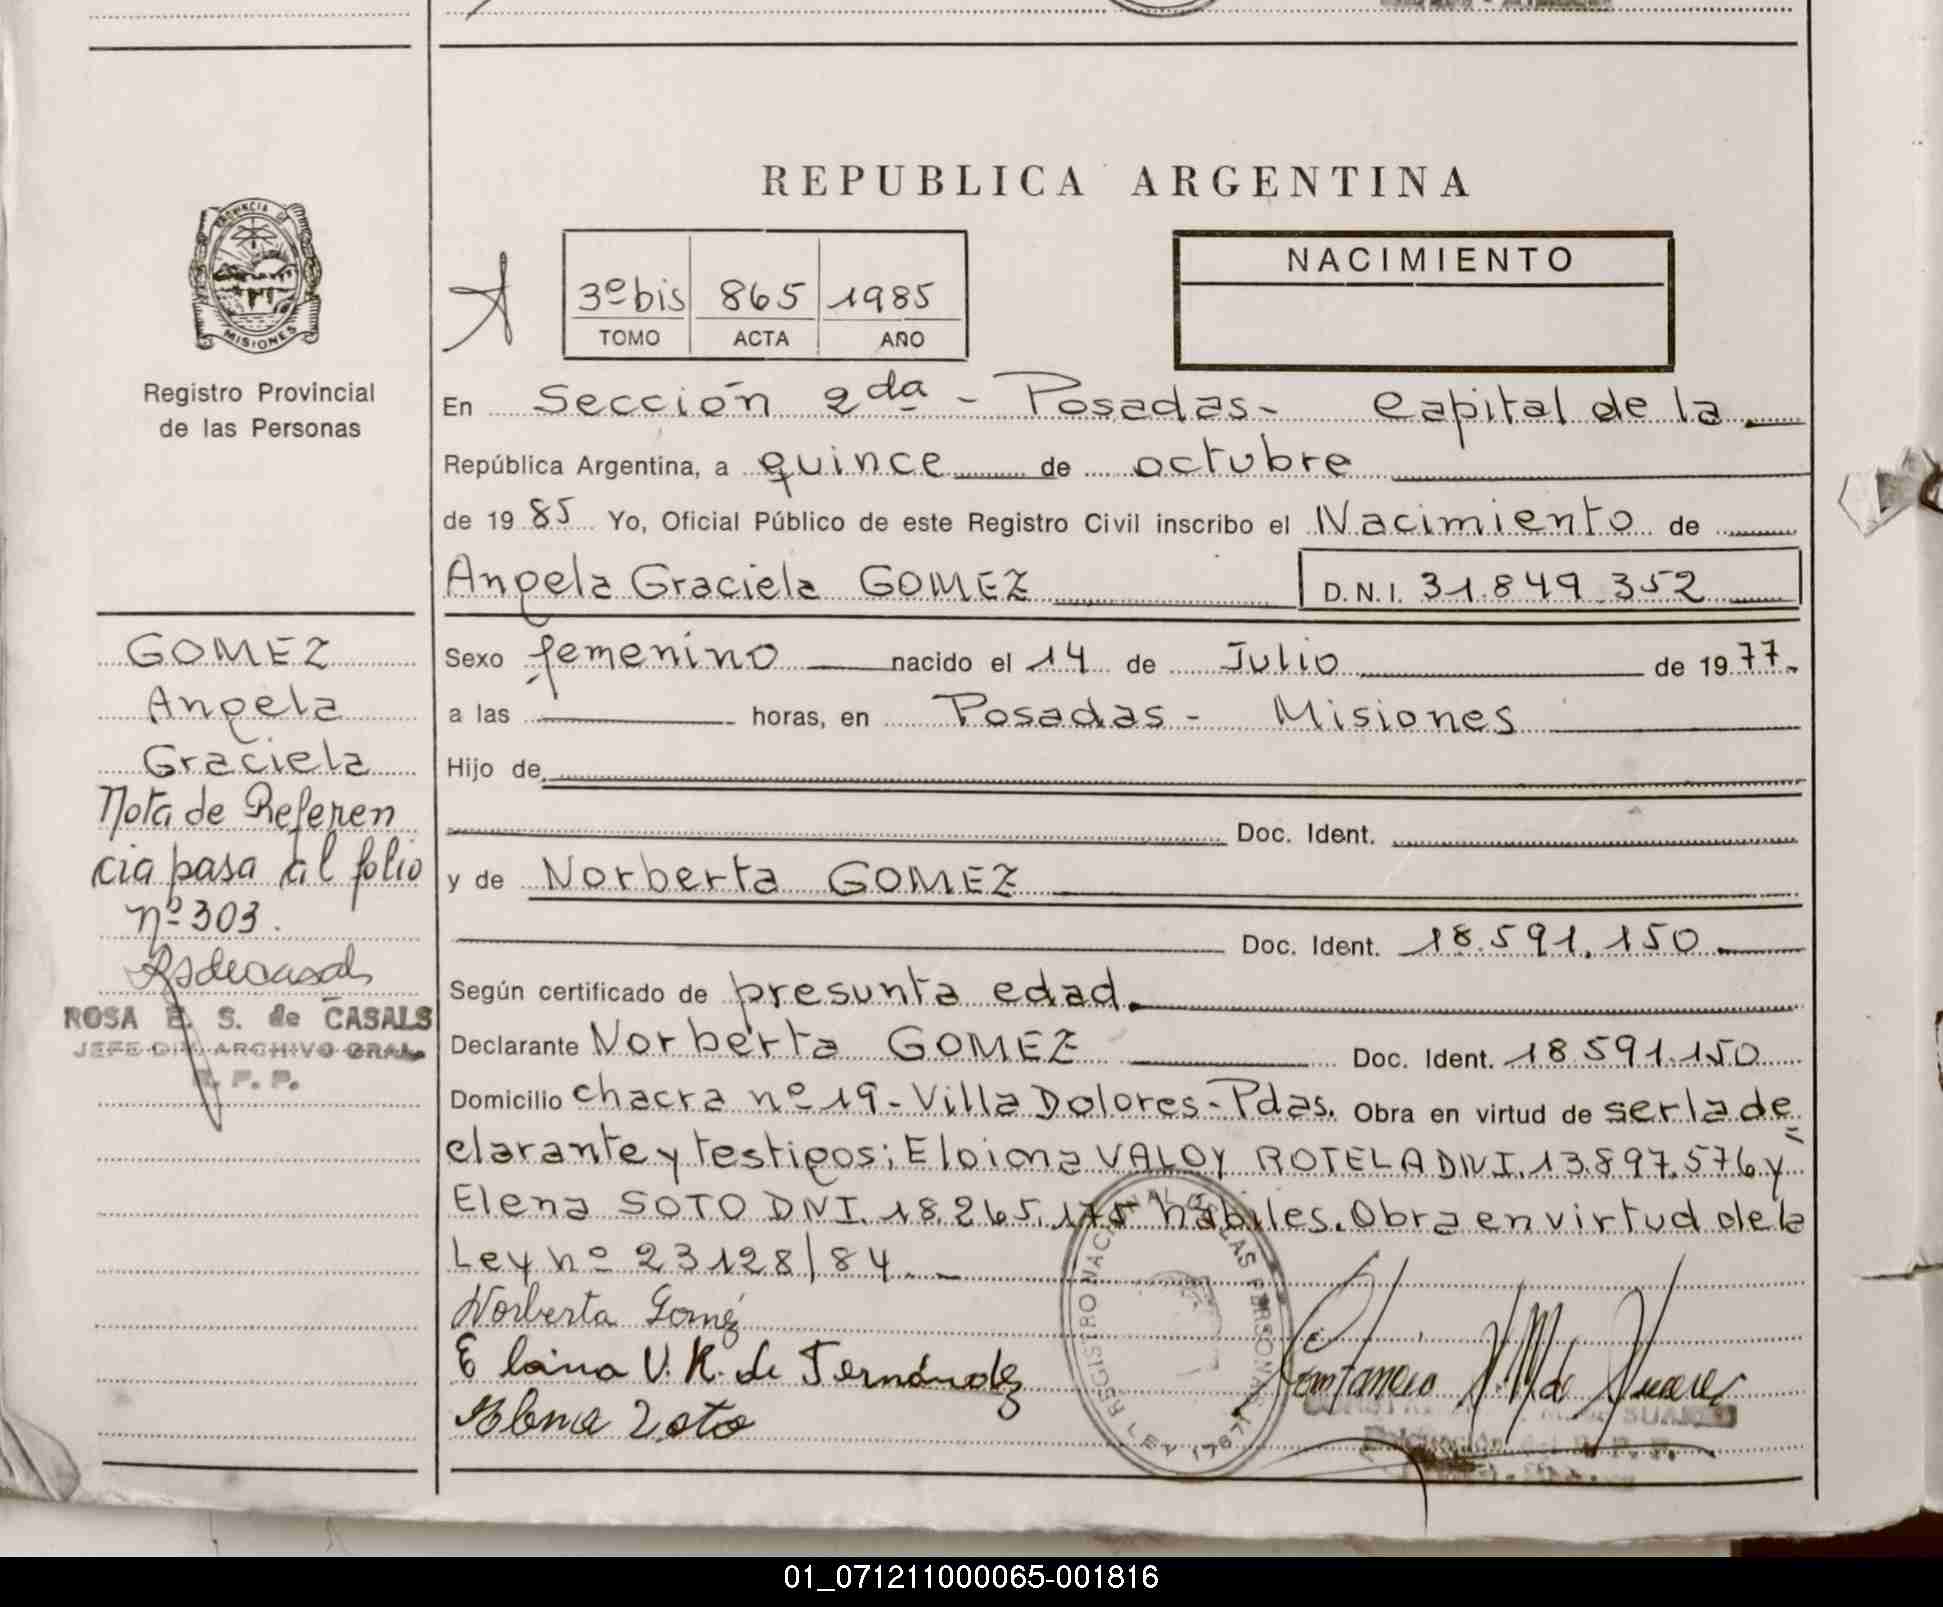 REPUBLICA ARGENTINA
PROVINCIA DE MISIONES
Registro Provincial
de las Personas
A
3º bis 865 1985
TOMO ACTA AÑO
NACIMIENTO
En Sección 2da - Posadas - Capital de la
República Argentina, a quince de octubre
de 1985 Yo, Oficial Público de este Registro Civil inscribo el Nacimiento de
Angela Graciela GOMEZ D.N.I. 31.849.352
Sexo femenino nacido el 14 de Julio de 1977.
a las horas, en Posadas - Misiones
Hijo de
Doc. Ident.
y de Norberta GOMEZ
Doc. Ident. 18.591.150
Según certificado de presunta edad.
Declarante Norberta GOMEZ Doc. Ident. 18.591.150
Domicilio chacra nº 19 - Villa Dolores - Pdas. Obra en virtud de ser la de
clarante y testigos; Eloiona VALOY ROTELA DNI. 13.897.576 y
Elena SOTO DNI. 18.265.175 hábiles. Obra en virtud de la
Ley nº 23128/84. -
Norberta Goméz
Eloina V. R. de Fernández
Elena Soto
REGISTRO NACIONAL DE LAS PERSONAS
LEY 17671
GOMEZ
Angela
Graciela
Nota de Referen
cia pasa al folio
nº 303.
ROSA E. S. de CASALS
JEFE DIV. ARCHIVO GRAL.
R. P. P.
01_071211000065-001816